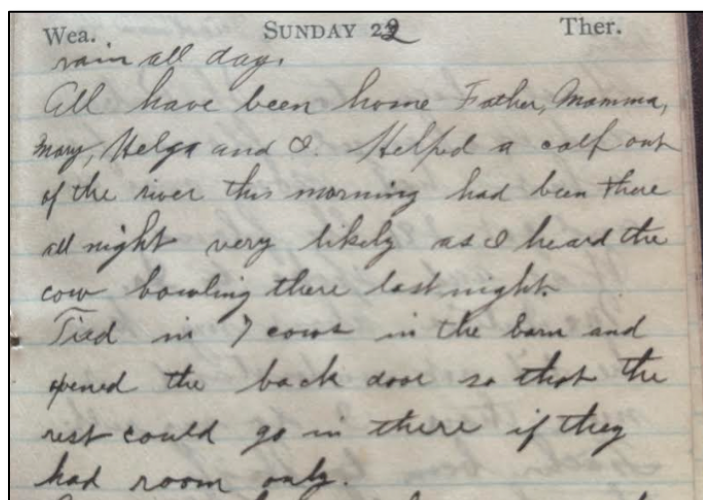 Wea. SUNDAY 22 Ther.
rain all day.
All have been home Father, Mamma,
Mary, Helga and I. Helped a calf out
of the river this morning had been there
all night very likely as I heard the
cow bowling there last night.
Tied in 7 cows in the barn and
opened the back door so that the
rest could go in there if they
had room only.